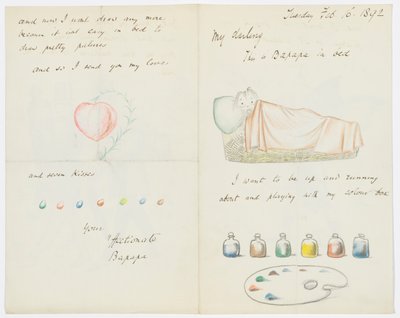 Tuesday Feb. 16. 1892
My darling
I'm a Bapapa in bed
I want to be up and running
about and playing with my colour box
and now I wont draw any more
because it not easy in bed to
draw pretty pictures
and so I send you my love
and seven kisses
Your
Affectionate
Bapapa